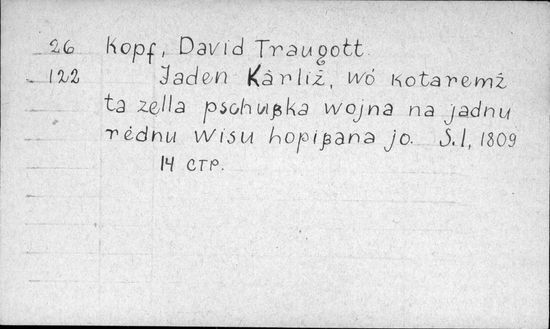 26 Kopf, David Traugott.
122 Jaden Kärliž, wó kotaremž
ta zella pschußka wojna na jadnu
rědnu wisu hopißana jo. S.l, 1809
14 стр.